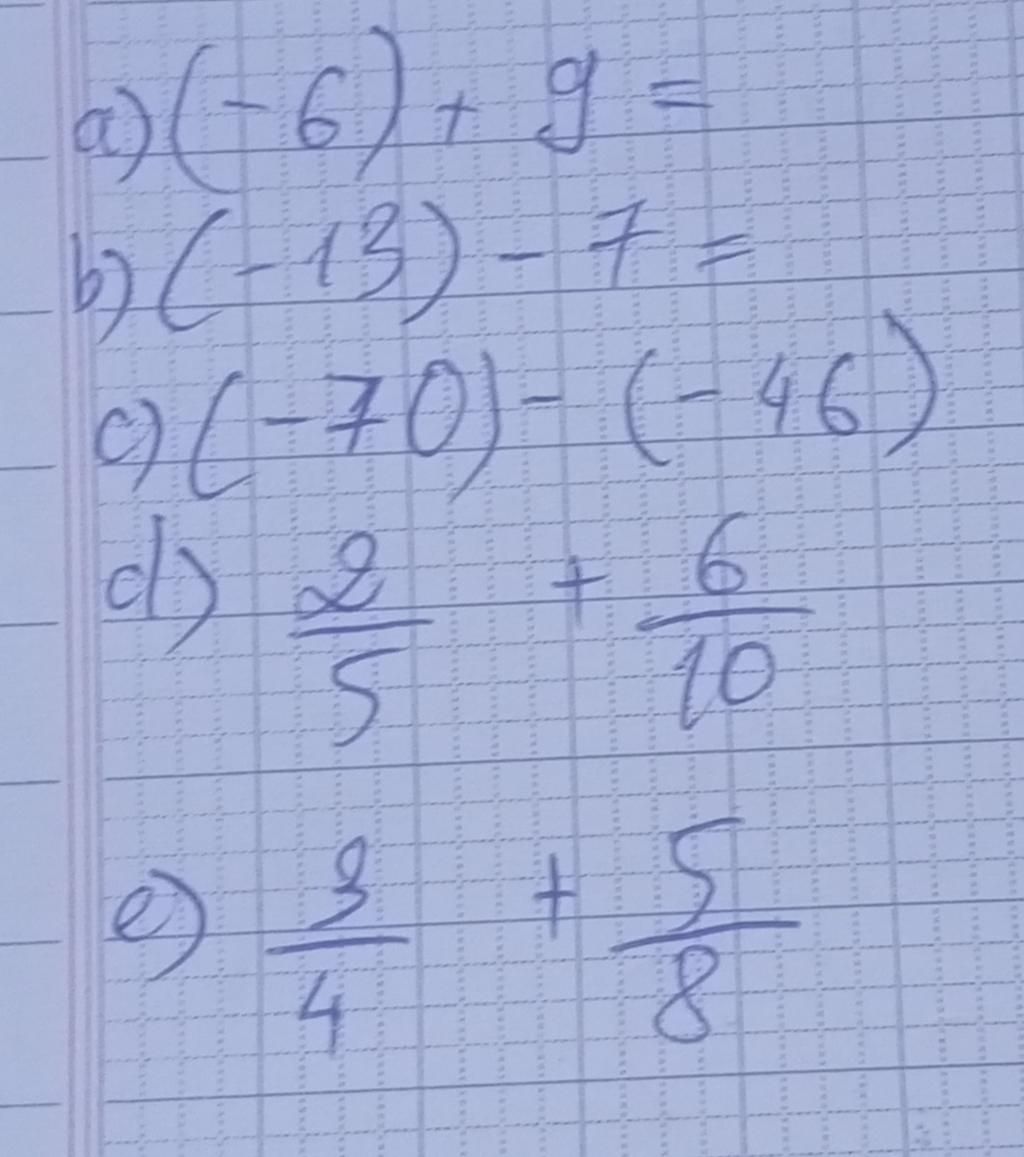 a) (-6) + 9 =
b) (-13) - 7 =
c) (-70) - (-46)
d) 2/5 + 6/10
e) 3/4 + 5/8